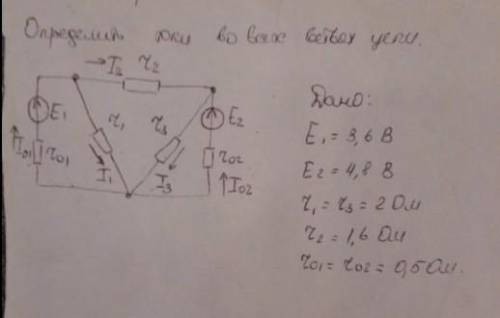 Определить токи во всех ветвях цепи.
→I₂ r₂
E₁ r₁ r₃ E₂
↑I₀₁ r₀₁ I₁ I₃ r₀₂ ↑I₀₂
Дано:
E₁ = 3,6 В
E₂ = 4,8 В
r₁ = r₃ = 2 Ом
r₂ = 1,6 Ом
r₀₁ = r₀₂ = 0,5 Ом.